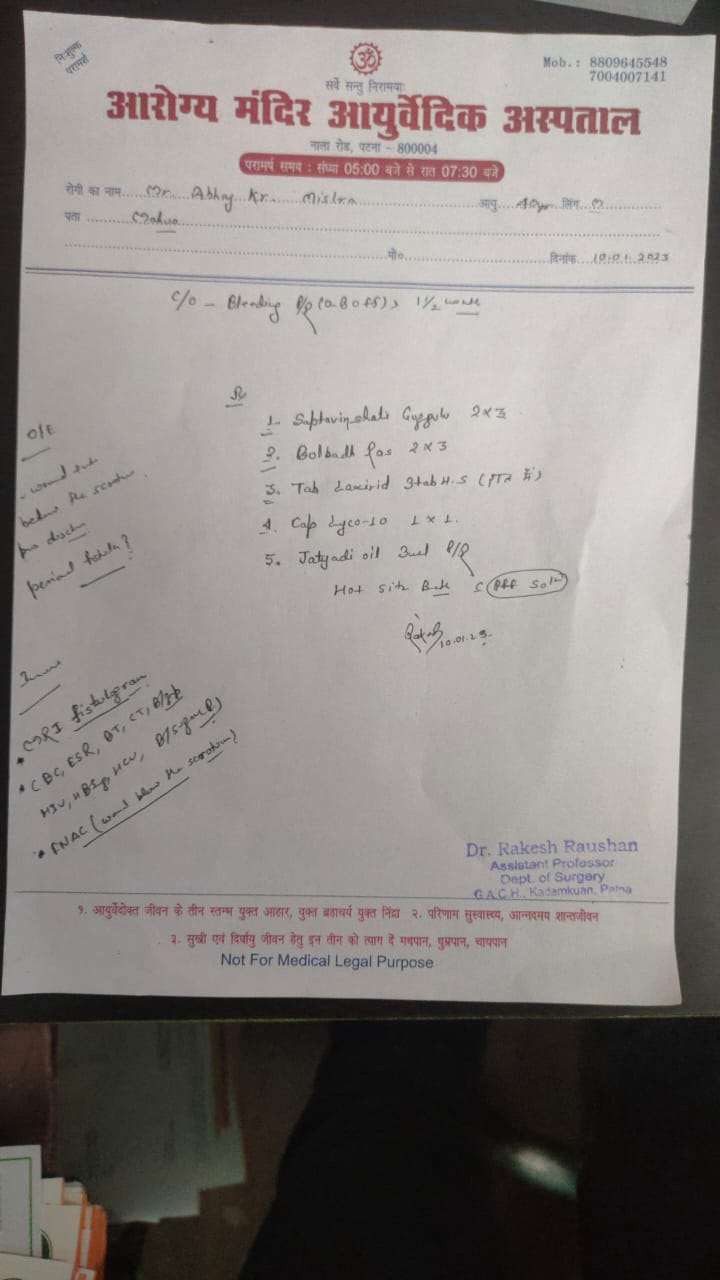 निःशुल्क
परामर्श
Mob.: 8809645548
7004007141
सर्वे सन्तु निरामयाः
आरोग्य मंदिर आयुर्वेदिक अस्पताल
नाला रोड, पटना - 800004
परामर्ष समय : संध्या 05:00 बजे से रात 07:30 बजे
रोगी का नाम..... Mr. Abhay Kr. Mishra आयु 40yr लिंग M
पता
मो० दिनांक 10.01.2023
C/O - Bleeding P/R 1 1/2
Rx
1. Saptavinshati Guggulu 2 x 3
2. Bolbadh Ras 2 x 3
3. Tab Laxirid 3tab H.S
4. Cap Lyco-10 1 x 1.
5. Jatyadi oil 3ml P/R
Hot Sitz Bath
10.01.23.
O/E
- wound
below the scrotum
pus
perianal fistula?
* MRI fistulogram
* CBC, ESR, BT, CT, B/gp
HIV, HBsAg, HCV, B/Sugar R
* FNAC (wound below the scrotum)
Dr. Rakesh Raushan
Assistant Professor
Dept. of Surgery
G.A.C.H., Kadamkuan, Patna
१. आयुर्वेदोक्त जीवन के तीन स्तम्भ युक्त आहार, युक्त ब्रह्मचर्य युक्त निंद्रा २. परिणाम सुस्वास्थ्य, आन्नदमय शान्तजीवन
३. सुखी एवं दिर्घायु जीवन हेतु इन तीन को त्याग दें मधपान, धुम्रपान, चायपान
Not For Medical Legal Purpose